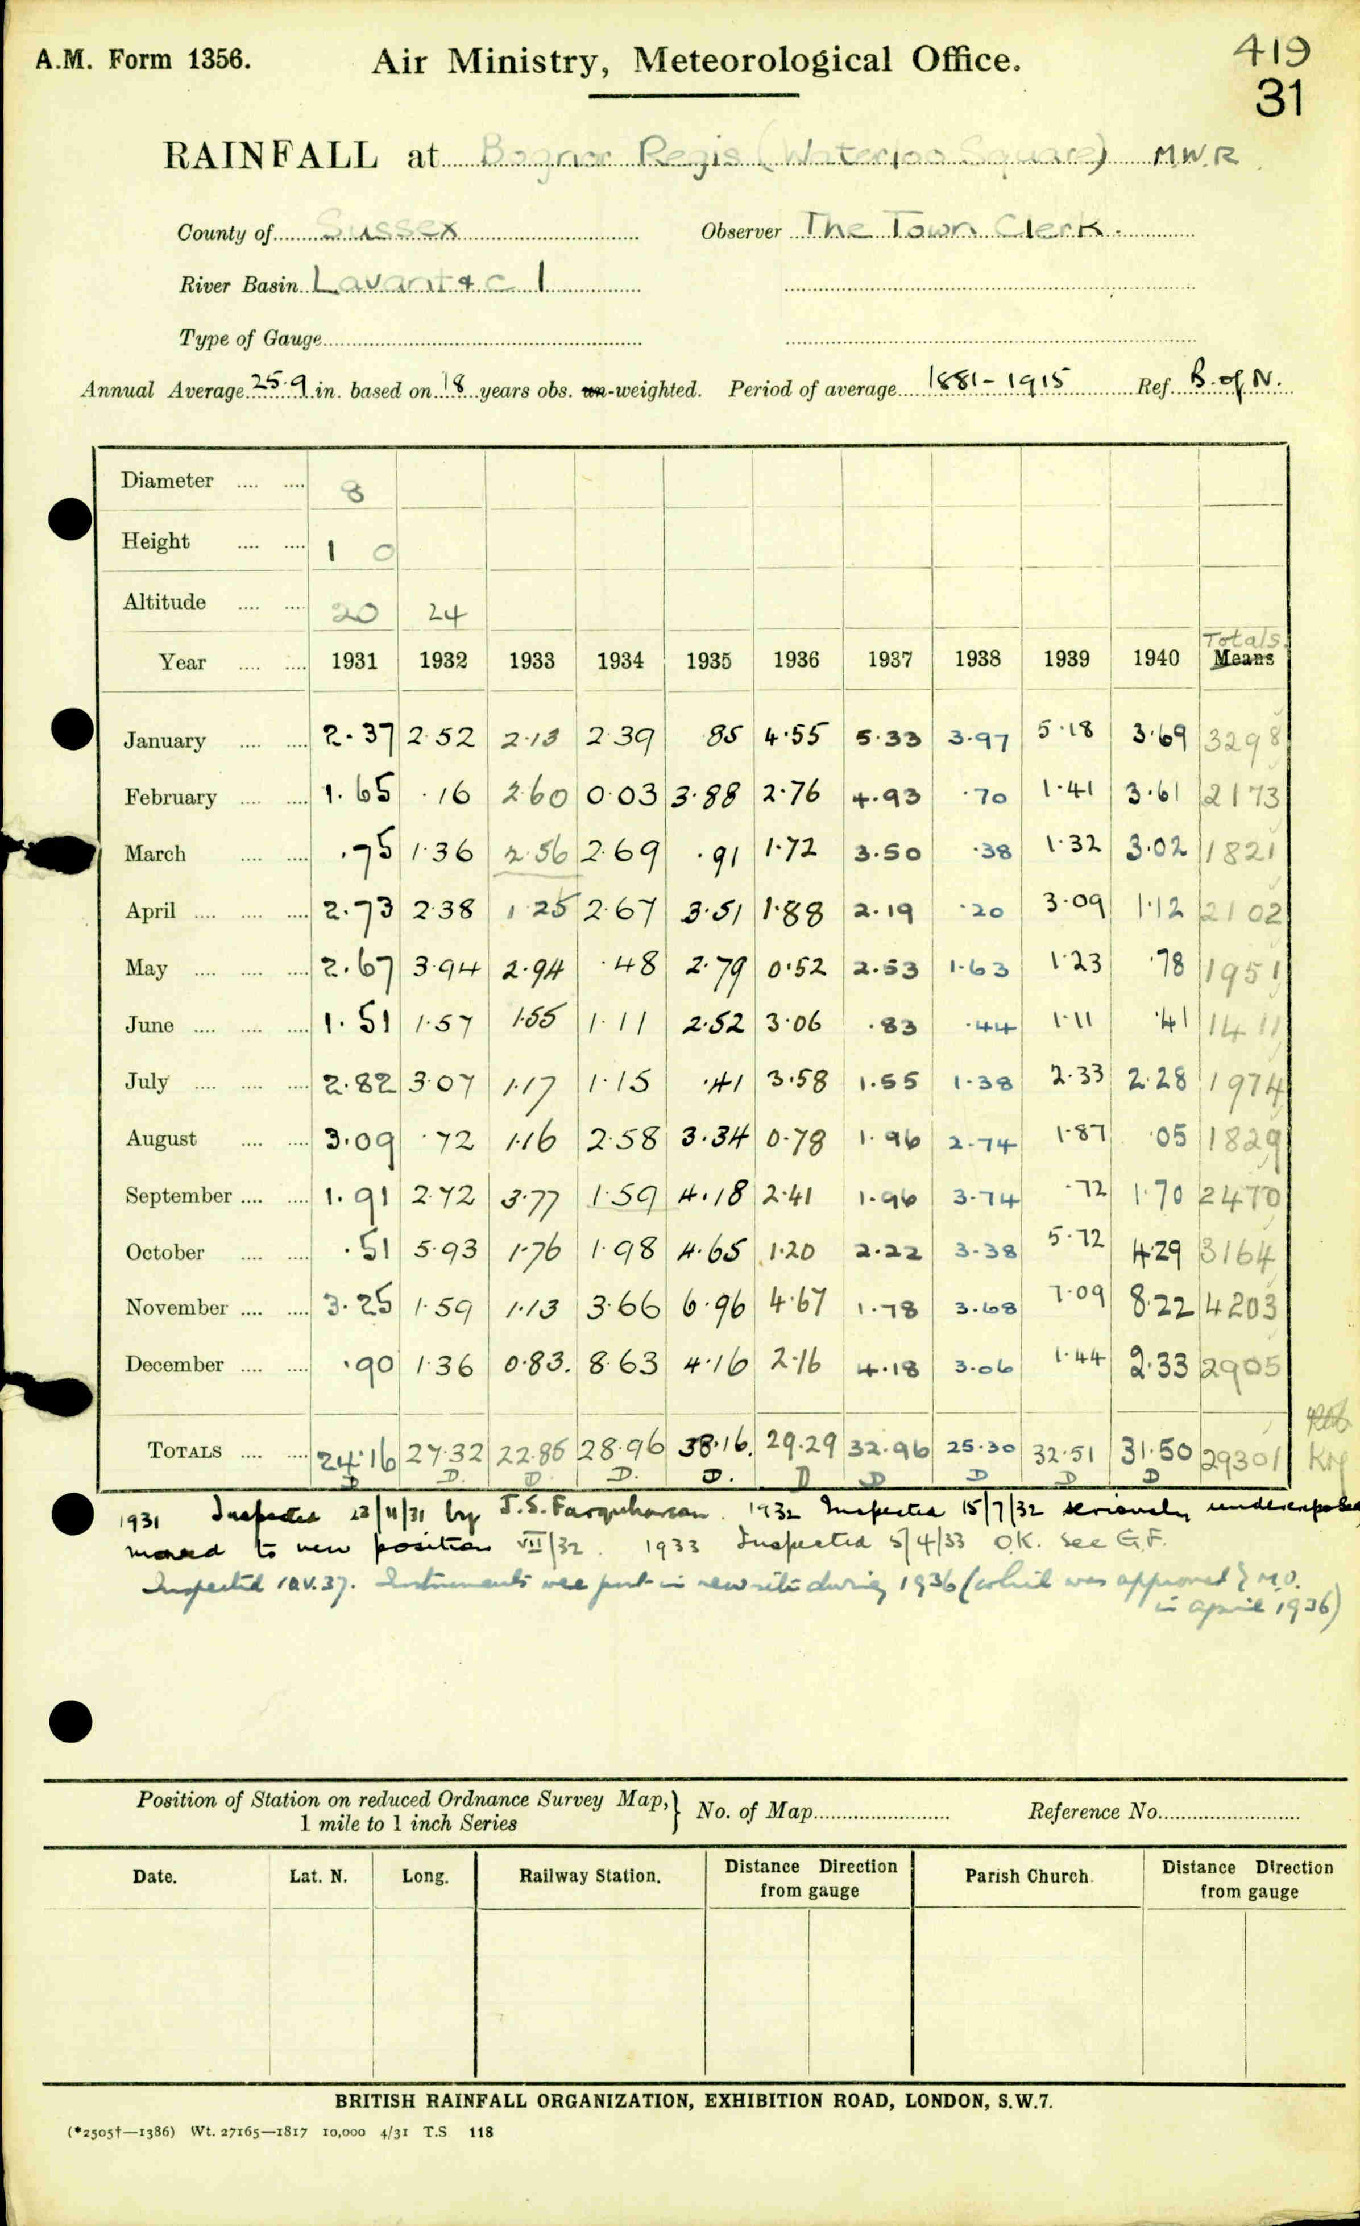 A.M. Form 1356. Air Ministry, Meteorological Office. 419
31
RAINFALL at Bognor Regis (Waterloo Square) M.W.R.
County of Sussex Observer The Town Clerk.
River Basin Lavant & c 1
Type of Gauge
Annual Average 25.9 in. based on 18 years obs. un-weighted. Period of average 1881-1915 Ref. B. of N.
Diameter 8
Height 1 0
Altitude 20 24
Totals
Year 1931 1932 1933 1934 1935 1936 1937 1938 1939 1940 Means
January 2.37 2.52 2.13 2.39 .85 4.55 5.33 3.97 5.18 3.69 3298
February 1.65 .16 2.60 0.03 3.88 2.76 4.93 .70 1.41 3.61 2173
March .75 1.36 2.56 2.69 .91 1.72 3.50 .38 1.32 3.02 1821
April 2.73 2.38 1.25 2.67 3.51 1.88 2.19 .20 3.09 1.12 2102
May 2.67 3.94 2.94 .48 2.79 0.52 2.53 1.63 1.23 .78 1951
June 1.51 1.57 1.55 1.11 2.52 3.06 .83 .44 1.11 .41 1411
July 2.82 3.07 1.17 1.15 .41 3.58 1.55 1.38 2.33 2.28 1974
August 3.09 .72 1.16 2.58 3.34 0.78 1.96 2.74 1.87 .05 1829
September 1.91 2.72 3.77 1.59 4.18 2.41 1.96 3.74 .72 1.70 2470
October .51 5.93 1.76 1.98 4.65 1.20 2.22 3.38 5.72 4.29 3164
November 3.25 1.59 1.13 3.66 6.96 4.67 1.78 3.68 7.09 8.22 4203
December .90 1.36 0.83. 8.63 4.16 2.16 4.18 3.06 1.44 2.33 2905
TOTALS 24.16 27.32 22.85 28.96 38.16. 29.29 32.96 25.30 32.51 31.50 29301
D D. D. D. D. D D D D D
1931 Inspected 23/11/31 by J.S. Farquharson. 1932 Inspected 15/7/32 seriously underexposed
moved to new position VII/32. 1933 Inspected 5/4/33 O.K. See G.F.
Inspected 10.V.37. Instruments were put in new site during 1936 (which was approved by M.O.
in April 1936)
Position of Station on reduced Ordnance Survey Map, } No. of Map Reference No.
1 mile to 1 inch Series
Date. Lat. N. Long. Railway Station. Distance Direction from gauge Parish Church. Distance Direction from gauge
BRITISH RAINFALL ORGANIZATION, EXHIBITION ROAD, LONDON, S.W.7.
(*2505†—1386) Wt. 27165—1817 10,000 4/31 T.S 118